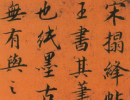 宋搨絳帖
王書其筆
也紙墨古
無有與之